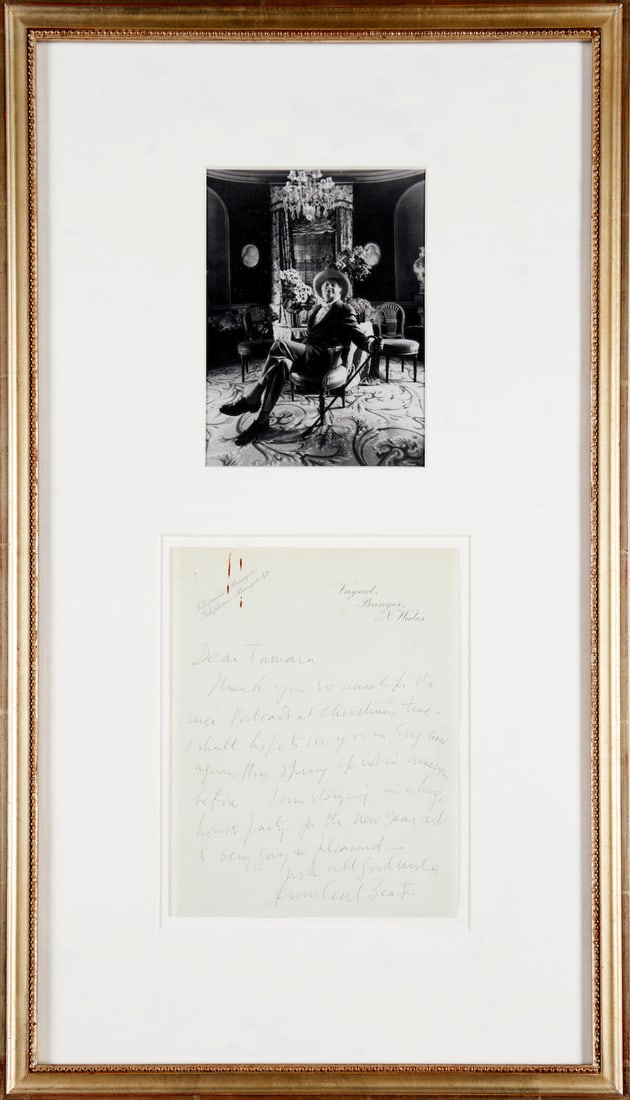 Telegrams Bangor.
Telephone Bangor
Vaynol.
Bangor.
N. Wales
Dear Tamara
Thank you so much for the
nice Postcard at Christmas time.
I shall hope to see you in England
again this Spring if not in
before. I am staying in a huge
house party for the New Year and
is very gay & pleasant —
with all good wishes
from Cecil Beaton